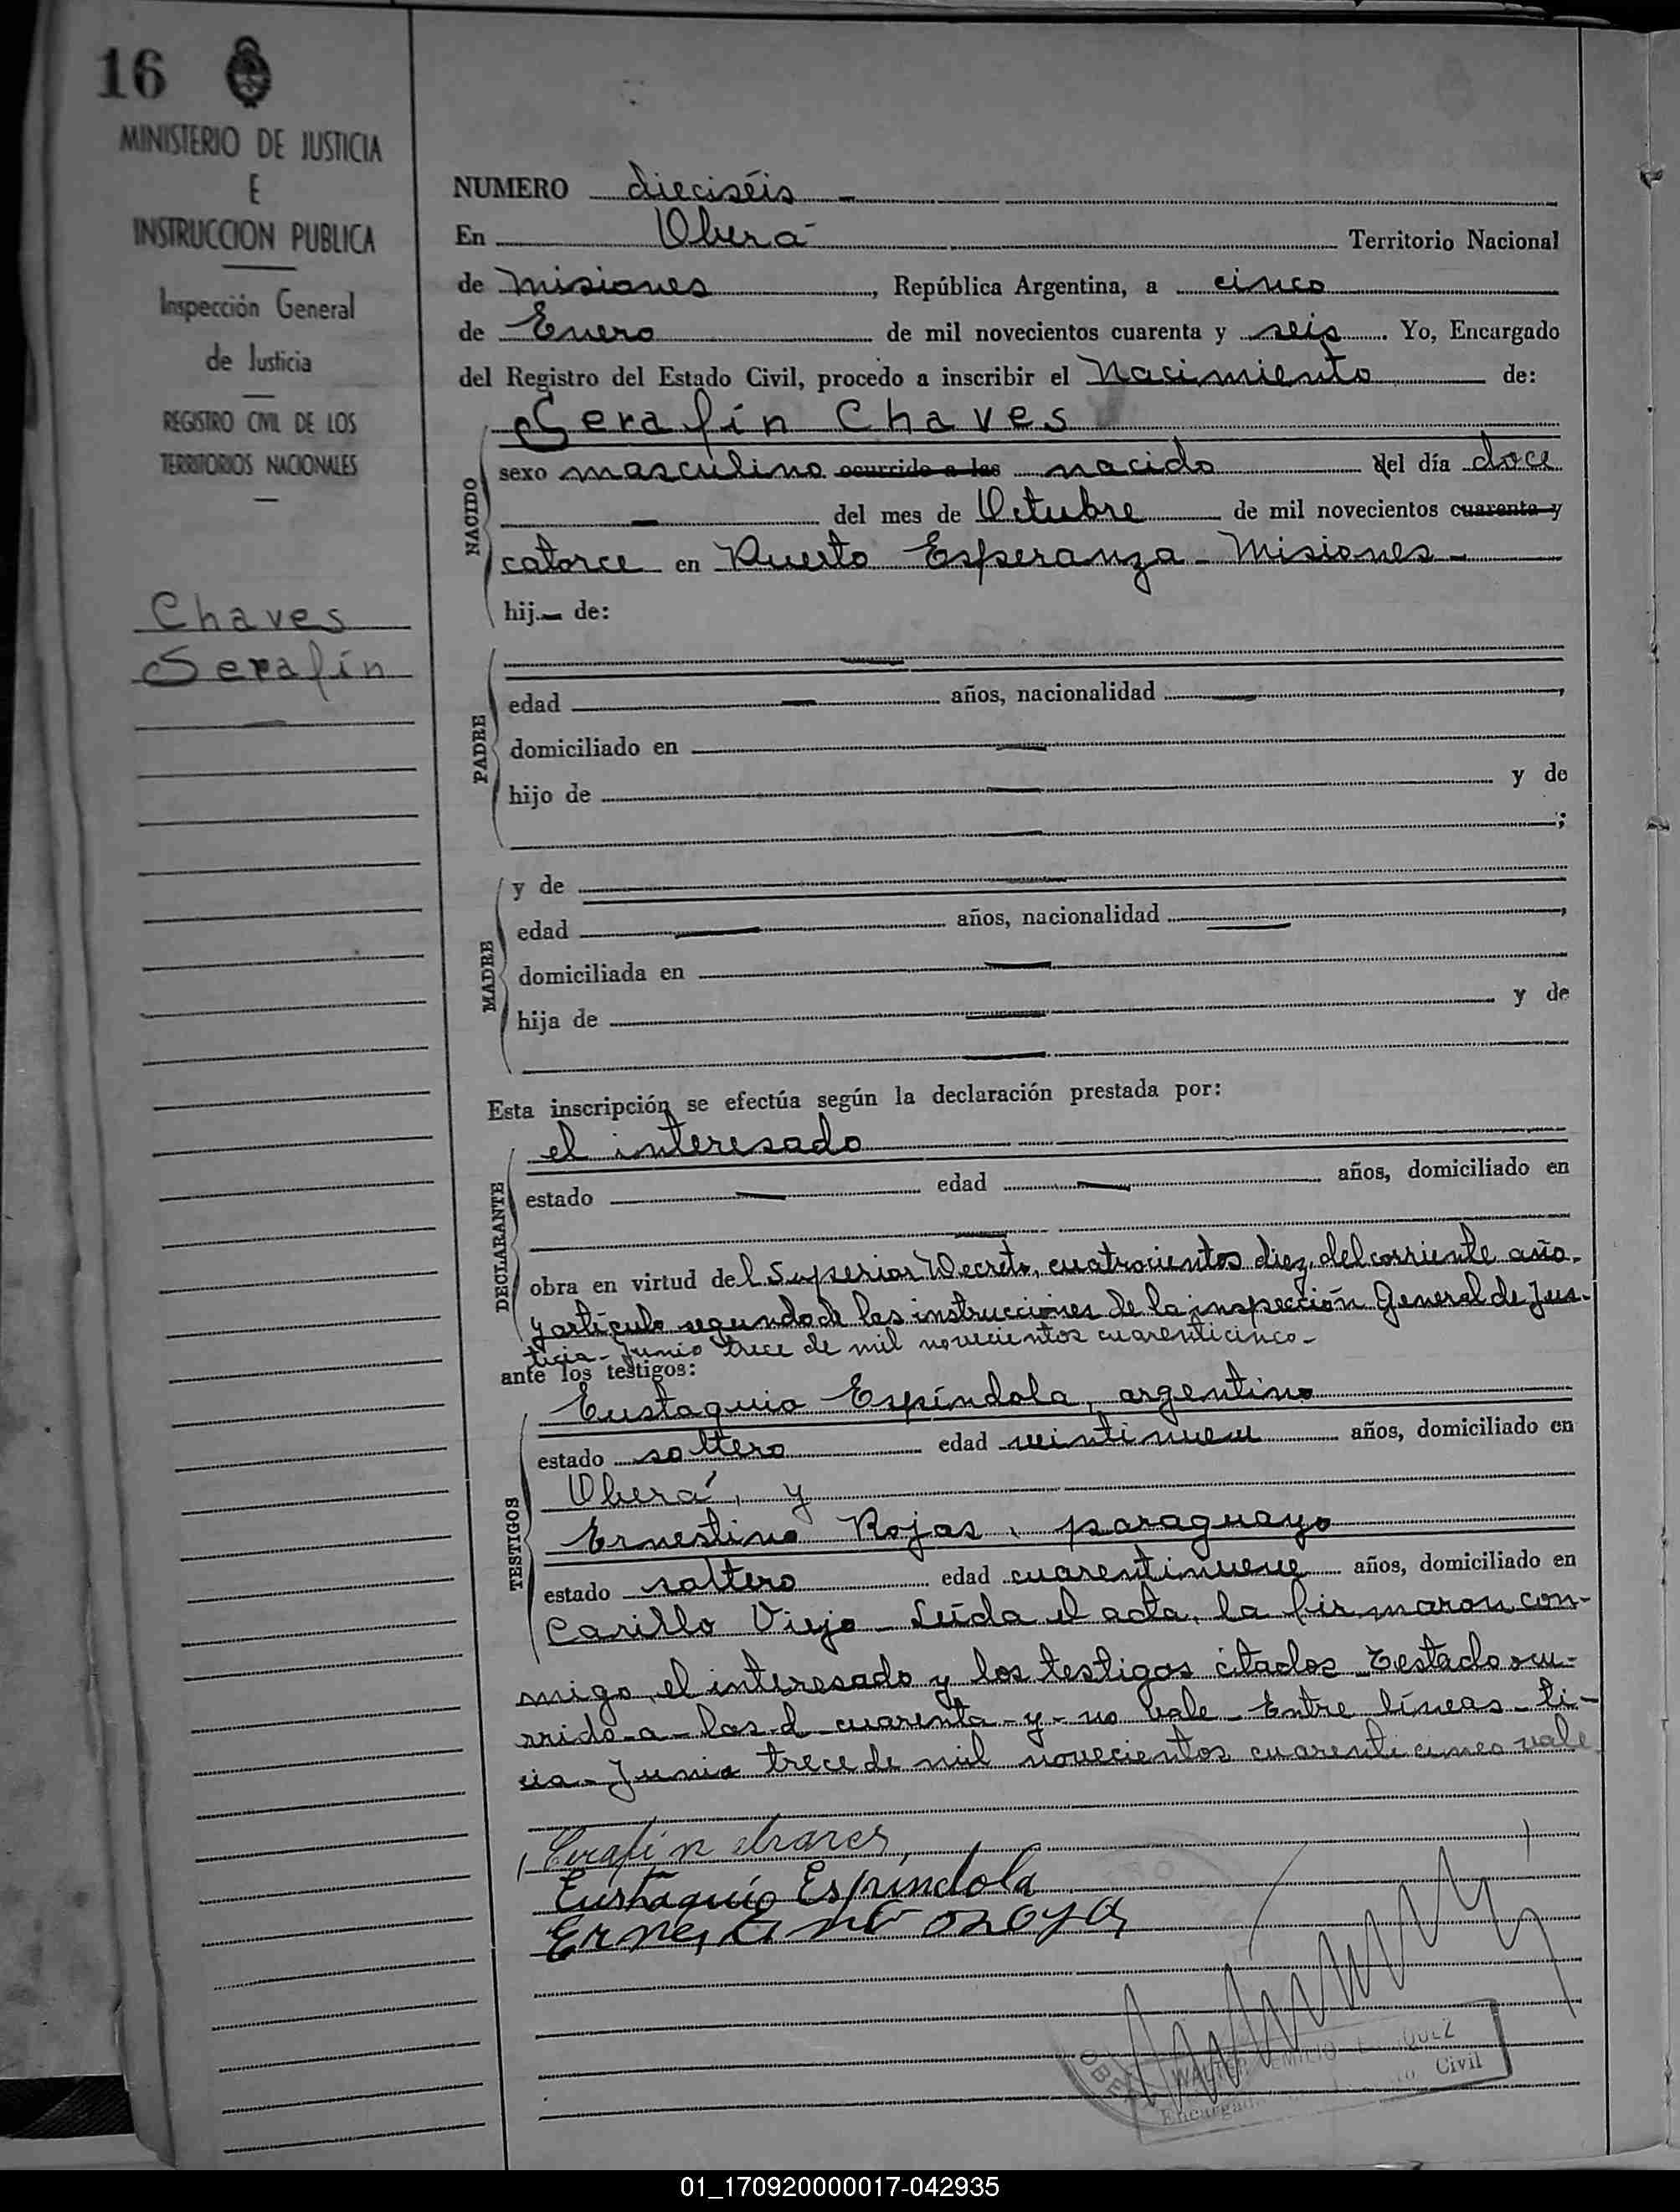 16
MINISTERIO DE JUSTICIA
E
INSTRUCCION PUBLICA
Inspección General
de Justicia
REGISTRO CIVIL DE LOS
TERRITORIOS NACIONALES
Chaves
Serafín
NUMERO dieciséis -
En Oberá Territorio Nacional
de Misiones, República Argentina, a cinco
de Enero de mil novecientos cuarenta y seis. Yo, Encargado
del Registro del Estado Civil, procedo a inscribir el Nacimiento de:
NACIDO
Serafín Chaves
sexo masculino ocurrido a las nacido del día doce
- del mes de Octubre de mil novecientos cuarenta y
catorce en Puerto Esperanza - Misiones -
hij - de:
PADRE
edad - años, nacionalidad -,
domiciliado en -
hijo de - y de
- ;
MADRE
y de -
edad - años, nacionalidad -,
domiciliada en -
hija de - y de
-
Esta inscripción se efectúa según la declaración prestada por:
DECLARANTE
el interesado
estado - edad - años, domiciliado en
-
obra en virtud del Superior Decreto, cuatrocientos diez, del corriente año.
y artículo segundo de las instrucciones de la inspección General de Jus-
ticia - Junio trece de mil novecientos cuarenticinco -
ante los testigos:
TESTIGOS
Eustaquio Espíndola, argentino
estado soltero edad veintinueve años, domiciliado en
Oberá, y
Ernestino Rojas, paraguayo
estado soltero edad cuarentinueve años, domiciliado en
Carillo Viejo - Leída el acta, la firmaron con-
migo, el interesado y los testigos citados Testado ocu-
rrido - a - las - d - cuarenta - y - no vale - Entre líneas - ti-
cia - Junio trece de mil novecientos cuarenticinco vale
Serafin chaves
Eustaquio Espíndola
OBERÁ
WALTER EMILIO
Encargado
Civil
01_170920000017-042935